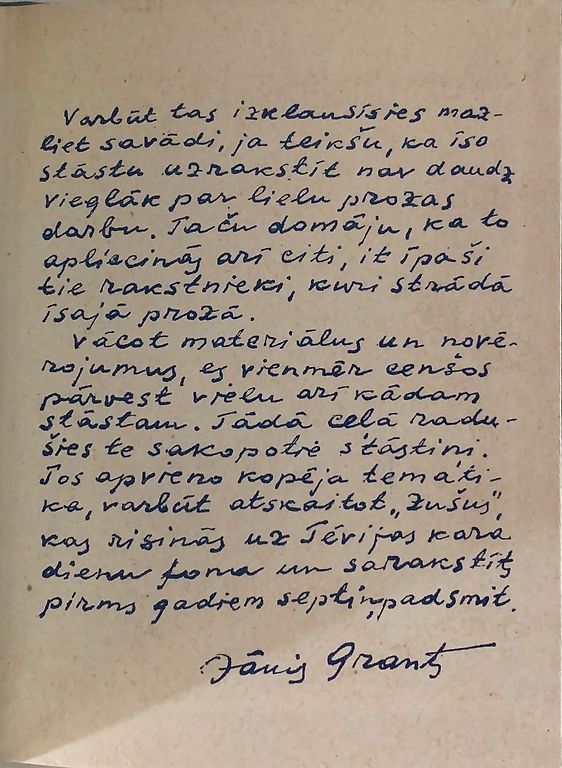 Varbūt tas izklausīsies maz-
liet savādi, ja teikšu, ka īso
stāstu uzrakstīt nav daudz
vieglāk par lielu prozas
darbu. Taču domāju, ka to
apliecinās arī citi, it īpaši
tie rakstnieki, kuri strādā
īsajā prozā.
Vācot materiālus un novē-
rojumus, es vienmēr cenšos
pārvest vielu arī kādam
stāstam. Tādā ceļā radu-
šies te sakopotie stāstiņi.
Tos apvieno kopēja temati-
ka, varbūt atskaitot „Zušus",
kas risinās uz Tēvijas kara
dienu fona un sarakstīts
pirms gadiem septiņpadsmit.
Jānis Grants